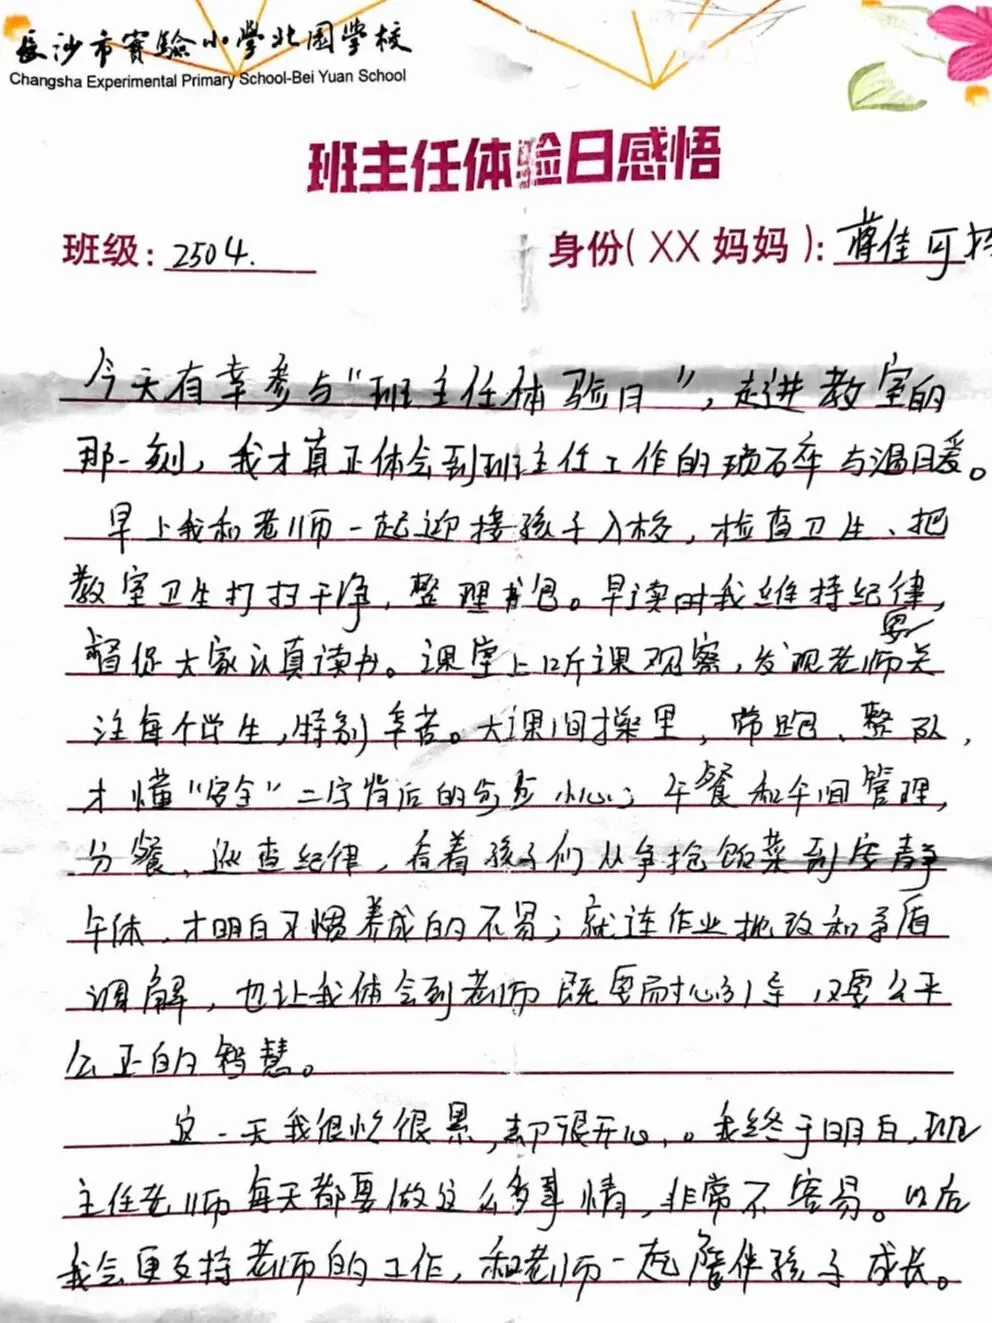 长沙市實驗小學北园學校
Changsha Experimental Primary School-Bei Yuan School
班主任体验日感悟
班级: 2504. 身份(XX妈妈): 蒋佳可
今天有幸参与“班主任体验日”,走进教室的
那一刻,我才真正体会到班主任工作的琐碎与温暖。
早上我和老师一起迎接孩子入校,检查卫生、把
教室卫生打扫干净,整理书包。早读时我维持纪律,
督促大家认真读书。课堂上听课观察,发现老师要关
注每个学生,特别辛苦。大课间操里,带跑、整队,
才懂“安全”二字背后的 小心;午餐和午间管理,
分餐、巡查纪律,看着孩子们从争抢饭菜到安静
午休,才明白习惯养成的不易;就连作业批改和矛盾
调解,也让我体会到老师既要耐心引导,又要公平
公正的智慧。
这一天我很忙很累,却很开心。我终于明白,班
主任老师每天都要做这么多事情,非常不容易。以后
我会更支持老师的工作,和老师一起陪伴孩子成长。